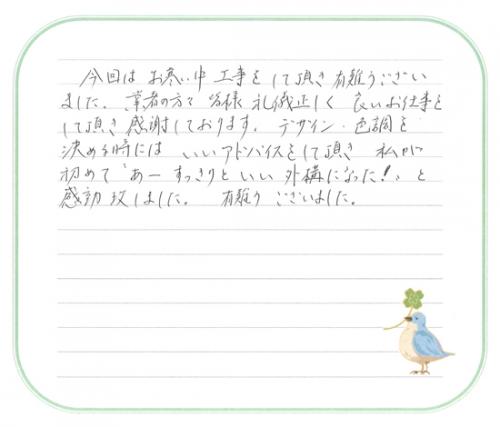 今回は お寒い中 工事をして頂き 有難うござい
ました。業者の方々 皆様 礼儀正しく 良いお仕事を
して頂き 感謝しております。デザイン・色調を
決める時には いいアドバイスをして頂き 私が
初めて「あー すっきりと いい 外構になった!」と
感動致しました。 有難う ございました。